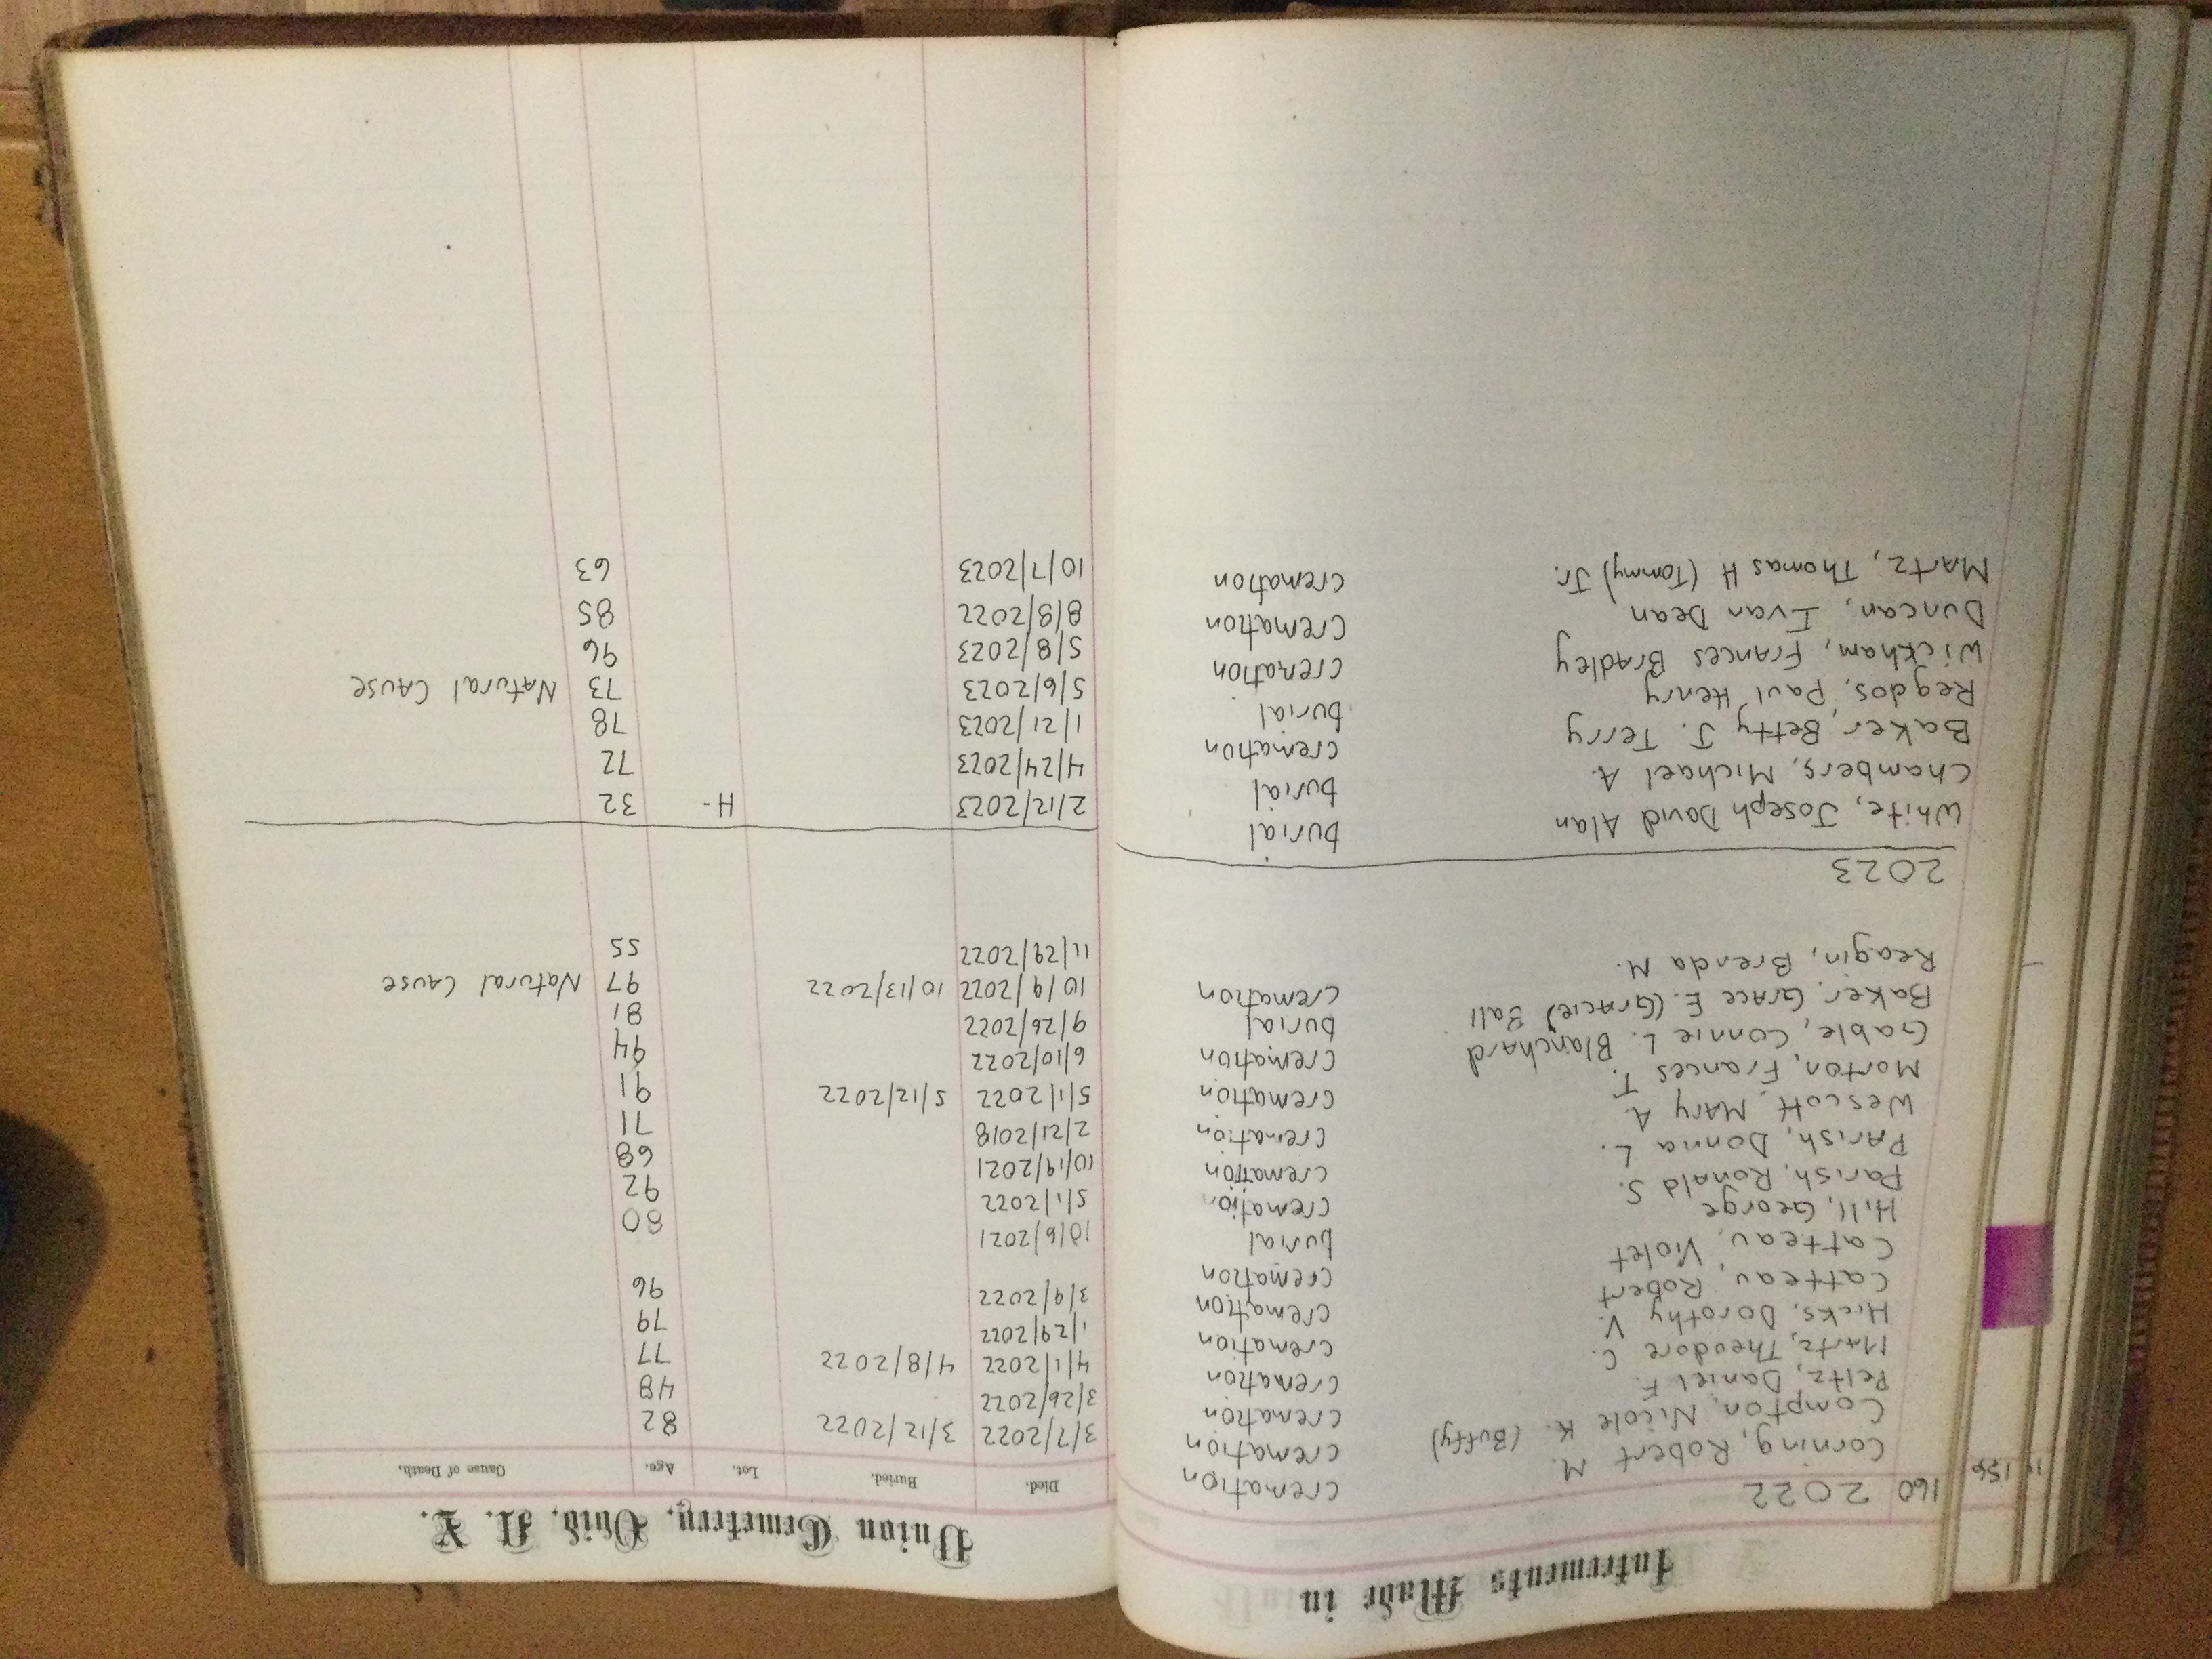 Interments Made in Union Cemetery, Ovid, N. Y.
160 2022 Died. Buried. Lot. Age. Cause of Death.
Corning, Robert M. cremation 3/7/2022 3/12/2022 82
Compton, Nicole K. (Buffy) cremation 3/26/2022 48
Peltz, Daniel F. cremation 4/1/2022 4/8/2022 77
Martz, Theodore C. cremation 1/29/2022 79
Hicks, Dorothy V. cremation 3/9/2022 96
Catteau, Robert cremation
Catteau, Violet cremation 10/6/2021 80
Hill, George burial 5/1/2022 92
Parish, Ronald S. cremation 10/19/2021 68
Parish, Donna L. cremation 2/21/2018 71
Wescott, Mary A. cremation 5/1/2022 5/12/2022 91
Morton, Frances T. cremation 6/10/2022 94
Gable, Connie L. Blanchard cremation 9/26/2022 81
Baker, Grace E. (Gracie) Ball burial 10/9/2022 10/13/2022 97 Natural Cause
Reagin, Brenda M. cremation 11/29/2022 55
2023
White, Joseph David Alan burial 2/12/2023 H- 32
Chambers, Michael A. burial 4/24/2023 72
Baker, Betty J. Terry cremation 1/21/2023 78
Regdos, Paul Henry burial 5/6/2023 73 Natural Cause
Wickham, Frances Bradley cremation 5/8/2023 96
Duncan, Ivan Dean cremation 8/8/2022 85
Martz, Thomas H (Tommy) Jr. cremation 10/7/2023 63
156